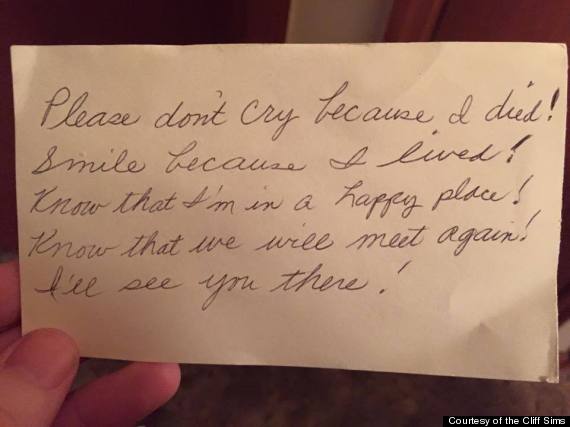 Please don't cry because I died!
Smile because I lived!
Know that I'm in a happy place!
Know that we will meet again!
I'll see you there!
Courtesy of the Cliff Sims